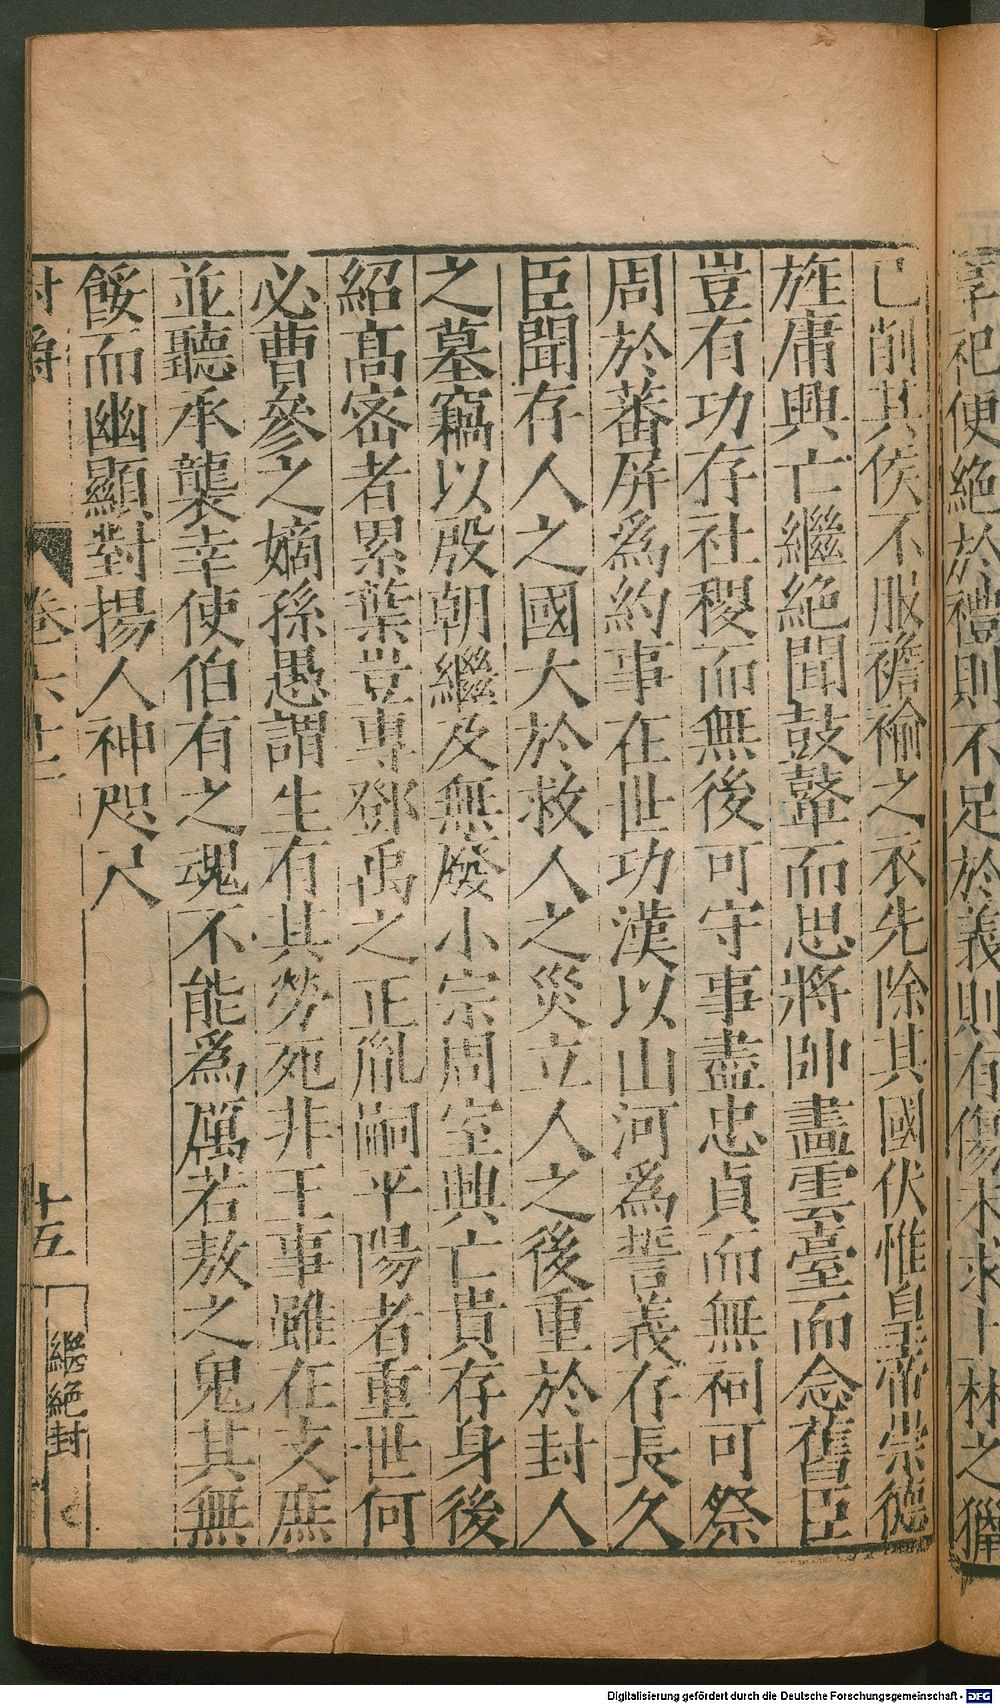 宰祀便絶於禮則不足於義則有傷未求上林之獵
已削其侯不服襜褕之衣先除其國伏惟皇帝崇德
旌庸興亡繼絶聞鼓鼙而思將帥畵雲臺而念舊臣
豈有功存社稷而無後可守事盡忠貞而無祠可祭
周於蕃屏爲約事在世功漢以山河爲誓義存長久
臣聞存人之國大於救人之災立人之後重於封人
之墓竊以殷朝繼及無廢小宗周室興亡貴存身後
紹髙密者累葉豈專鄧禹之正胤嗣平陽者重世何
必曹參之嫡孫愚謂生有其勞死非王事雖在文庶
並聽承襲幸使伯有之魂不能爲厲若敖之鬼其無
餒而幽顯對揚人神咫尺
封爵
卷六十二
十五
繼絶封
Digitalisierung gefördert durch die Deutsche Forschungsgemeinschaft - DFG